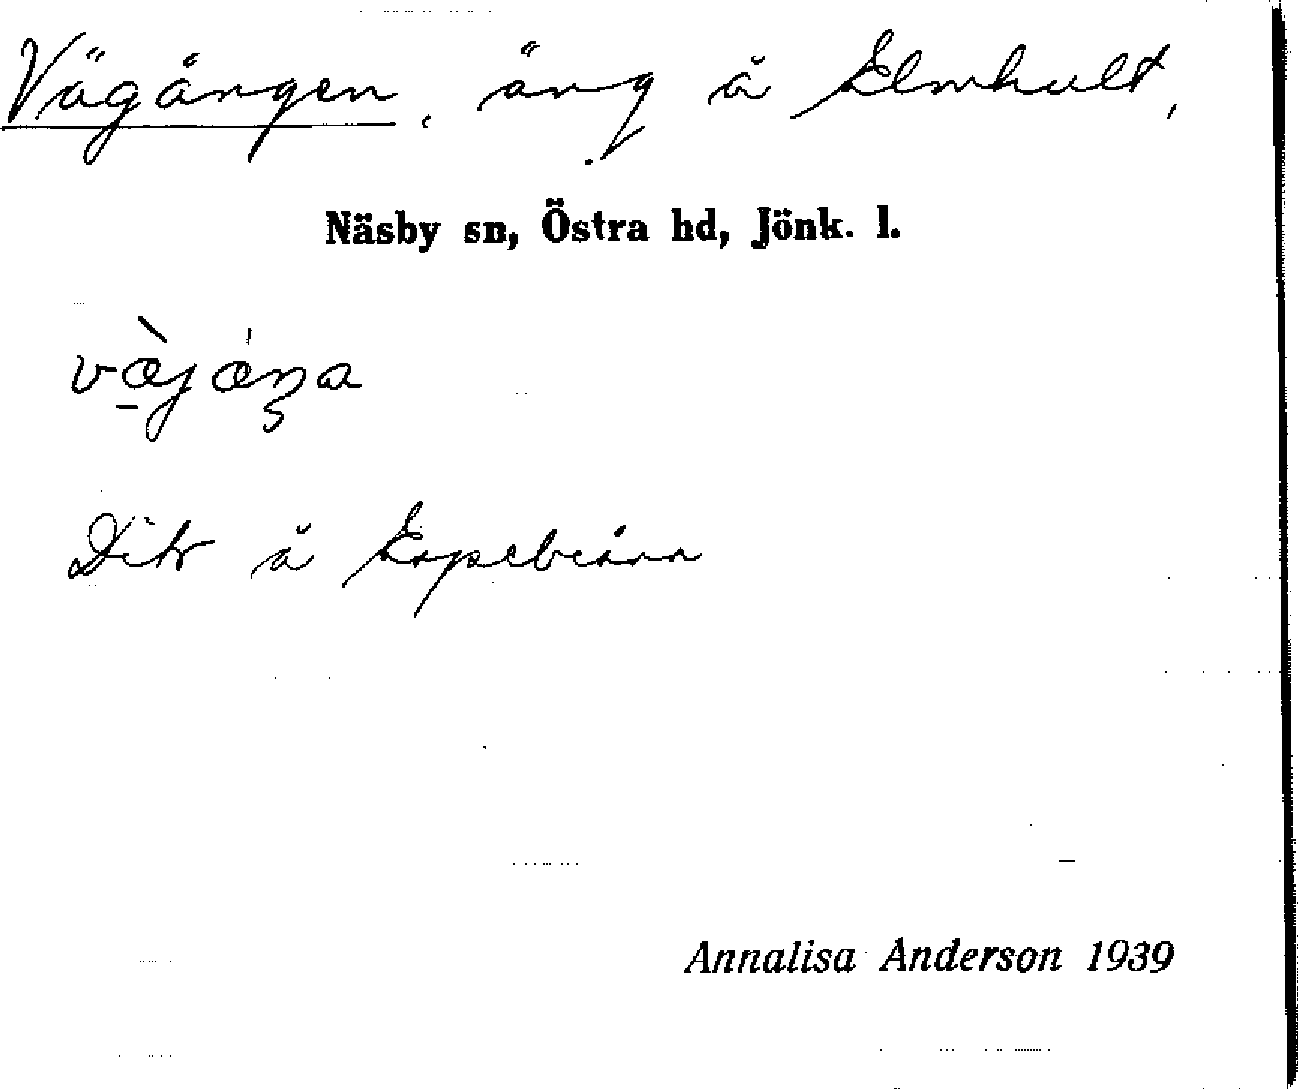 Vägängen, äng å Elmhult,
Näsby sn, Östra hd, Jönk. l.
væ̱̀jǽŋa
å
Annalisa Anderson 1939